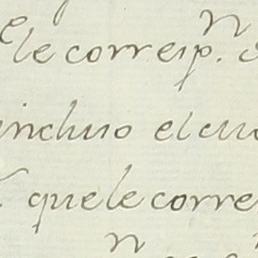 le corresp.n
incluso el cua
que le corre